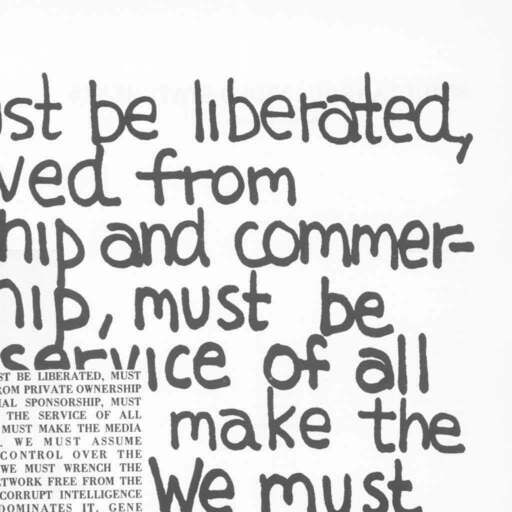 st be liberated,
ved from
hip and commer-
hip, must be
service of all
make the
We must
ST BE LIBERATED, MUST
ROM PRIVATE OWNERSHIP
IAL SPONSORSHIP, MUST
THE SERVICE OF ALL
MUST MAKE THE MEDIA
WE MUST ASSUME
CONTROL OVER THE
WE MUST WRENCH THE
TWORK FREE FROM THE
CORRUPT INTELLIGENCE
DOMINATES IT. GENE